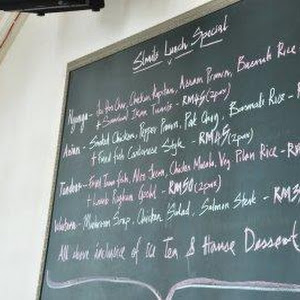 Straits Lunch Special
Nyonya - Chicken Kapitan, Assam Prawn, Basmati Rice
+ Sambal Ikan - RM45 (2pax)
Asian - Chicken, Pepper Prawn, Pak Choy, Basmati Rice - R
+ Fried Fish Cantonese Style - RM45 (2pax)
Tandoori - Fried Tuna fish, Chicken Masala, Veg Plain Rice - RM
+ Lamb - RM50 (2pax)
Western - Mushroom Soup, Chicken Salad, Salmon Steak - RM3
All above inclusive of Ice Tea & House Dessert